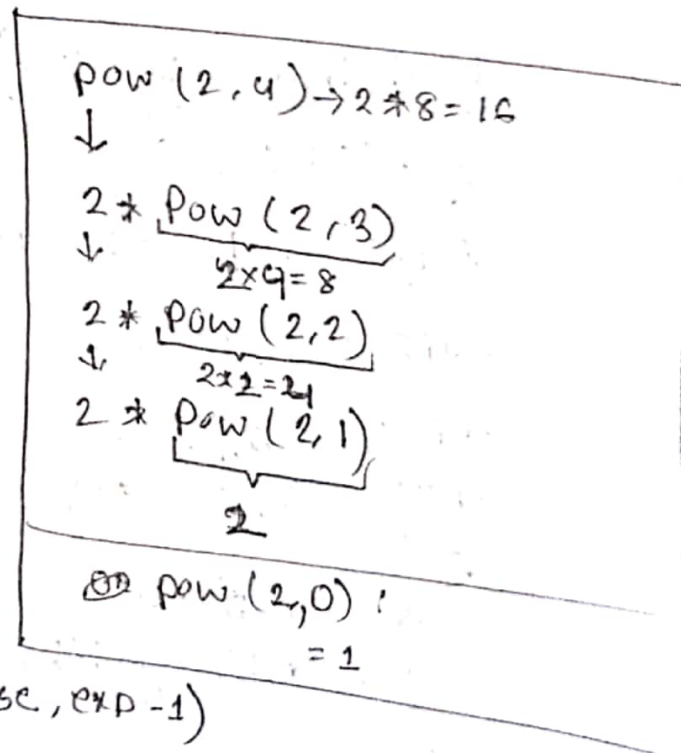 pow (2, 4) → 2 * 8 = 16
↓
2 * pow (2, 3)
↓
2×4 = 8
2 * pow (2,2)
↓
2×2 = 4
2 * pow (2, 1)
2
pow (2,0) :
= 1
se, exp - 1)